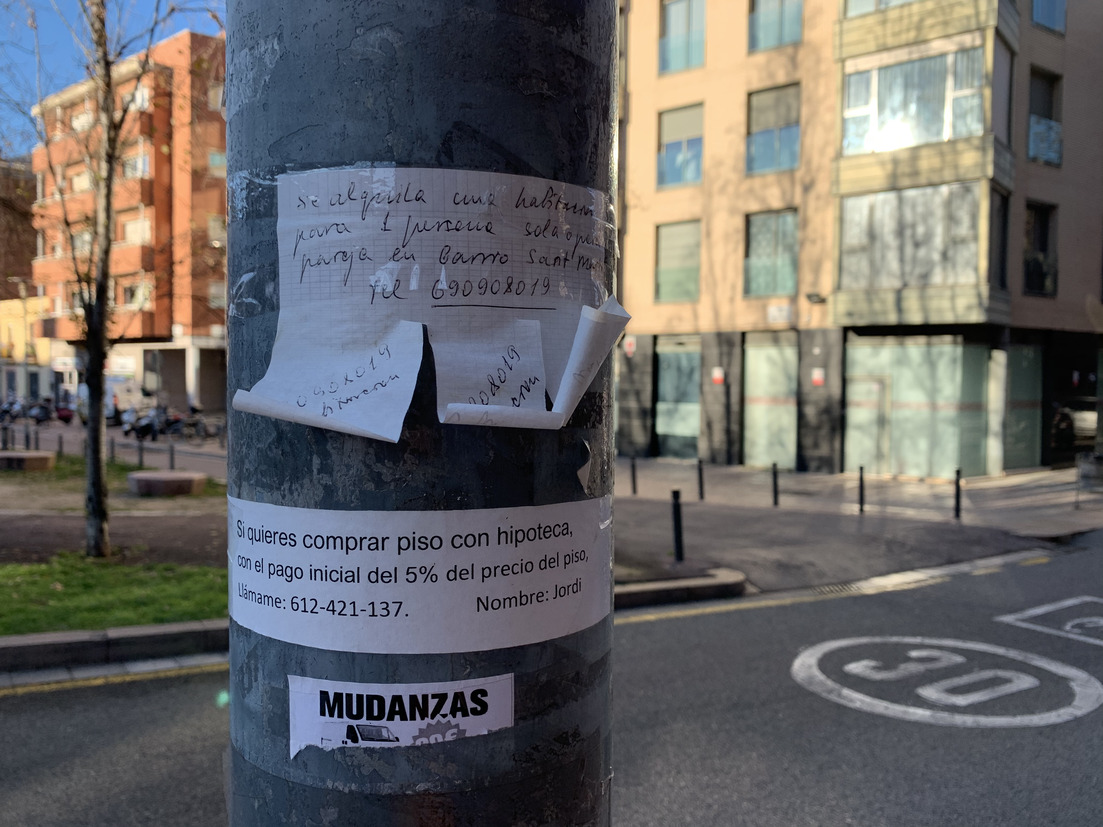 se alquila una
para 1 persona sola o
pareja en Barrio Sant
Tel 690908019
690x019
habitacion
908019
Si quieres comprar piso con hipoteca,
con el pago inicial del 5% del precio del piso,
Llámame: 612-421-137. Nombre: Jordi
MUDANZAS
30